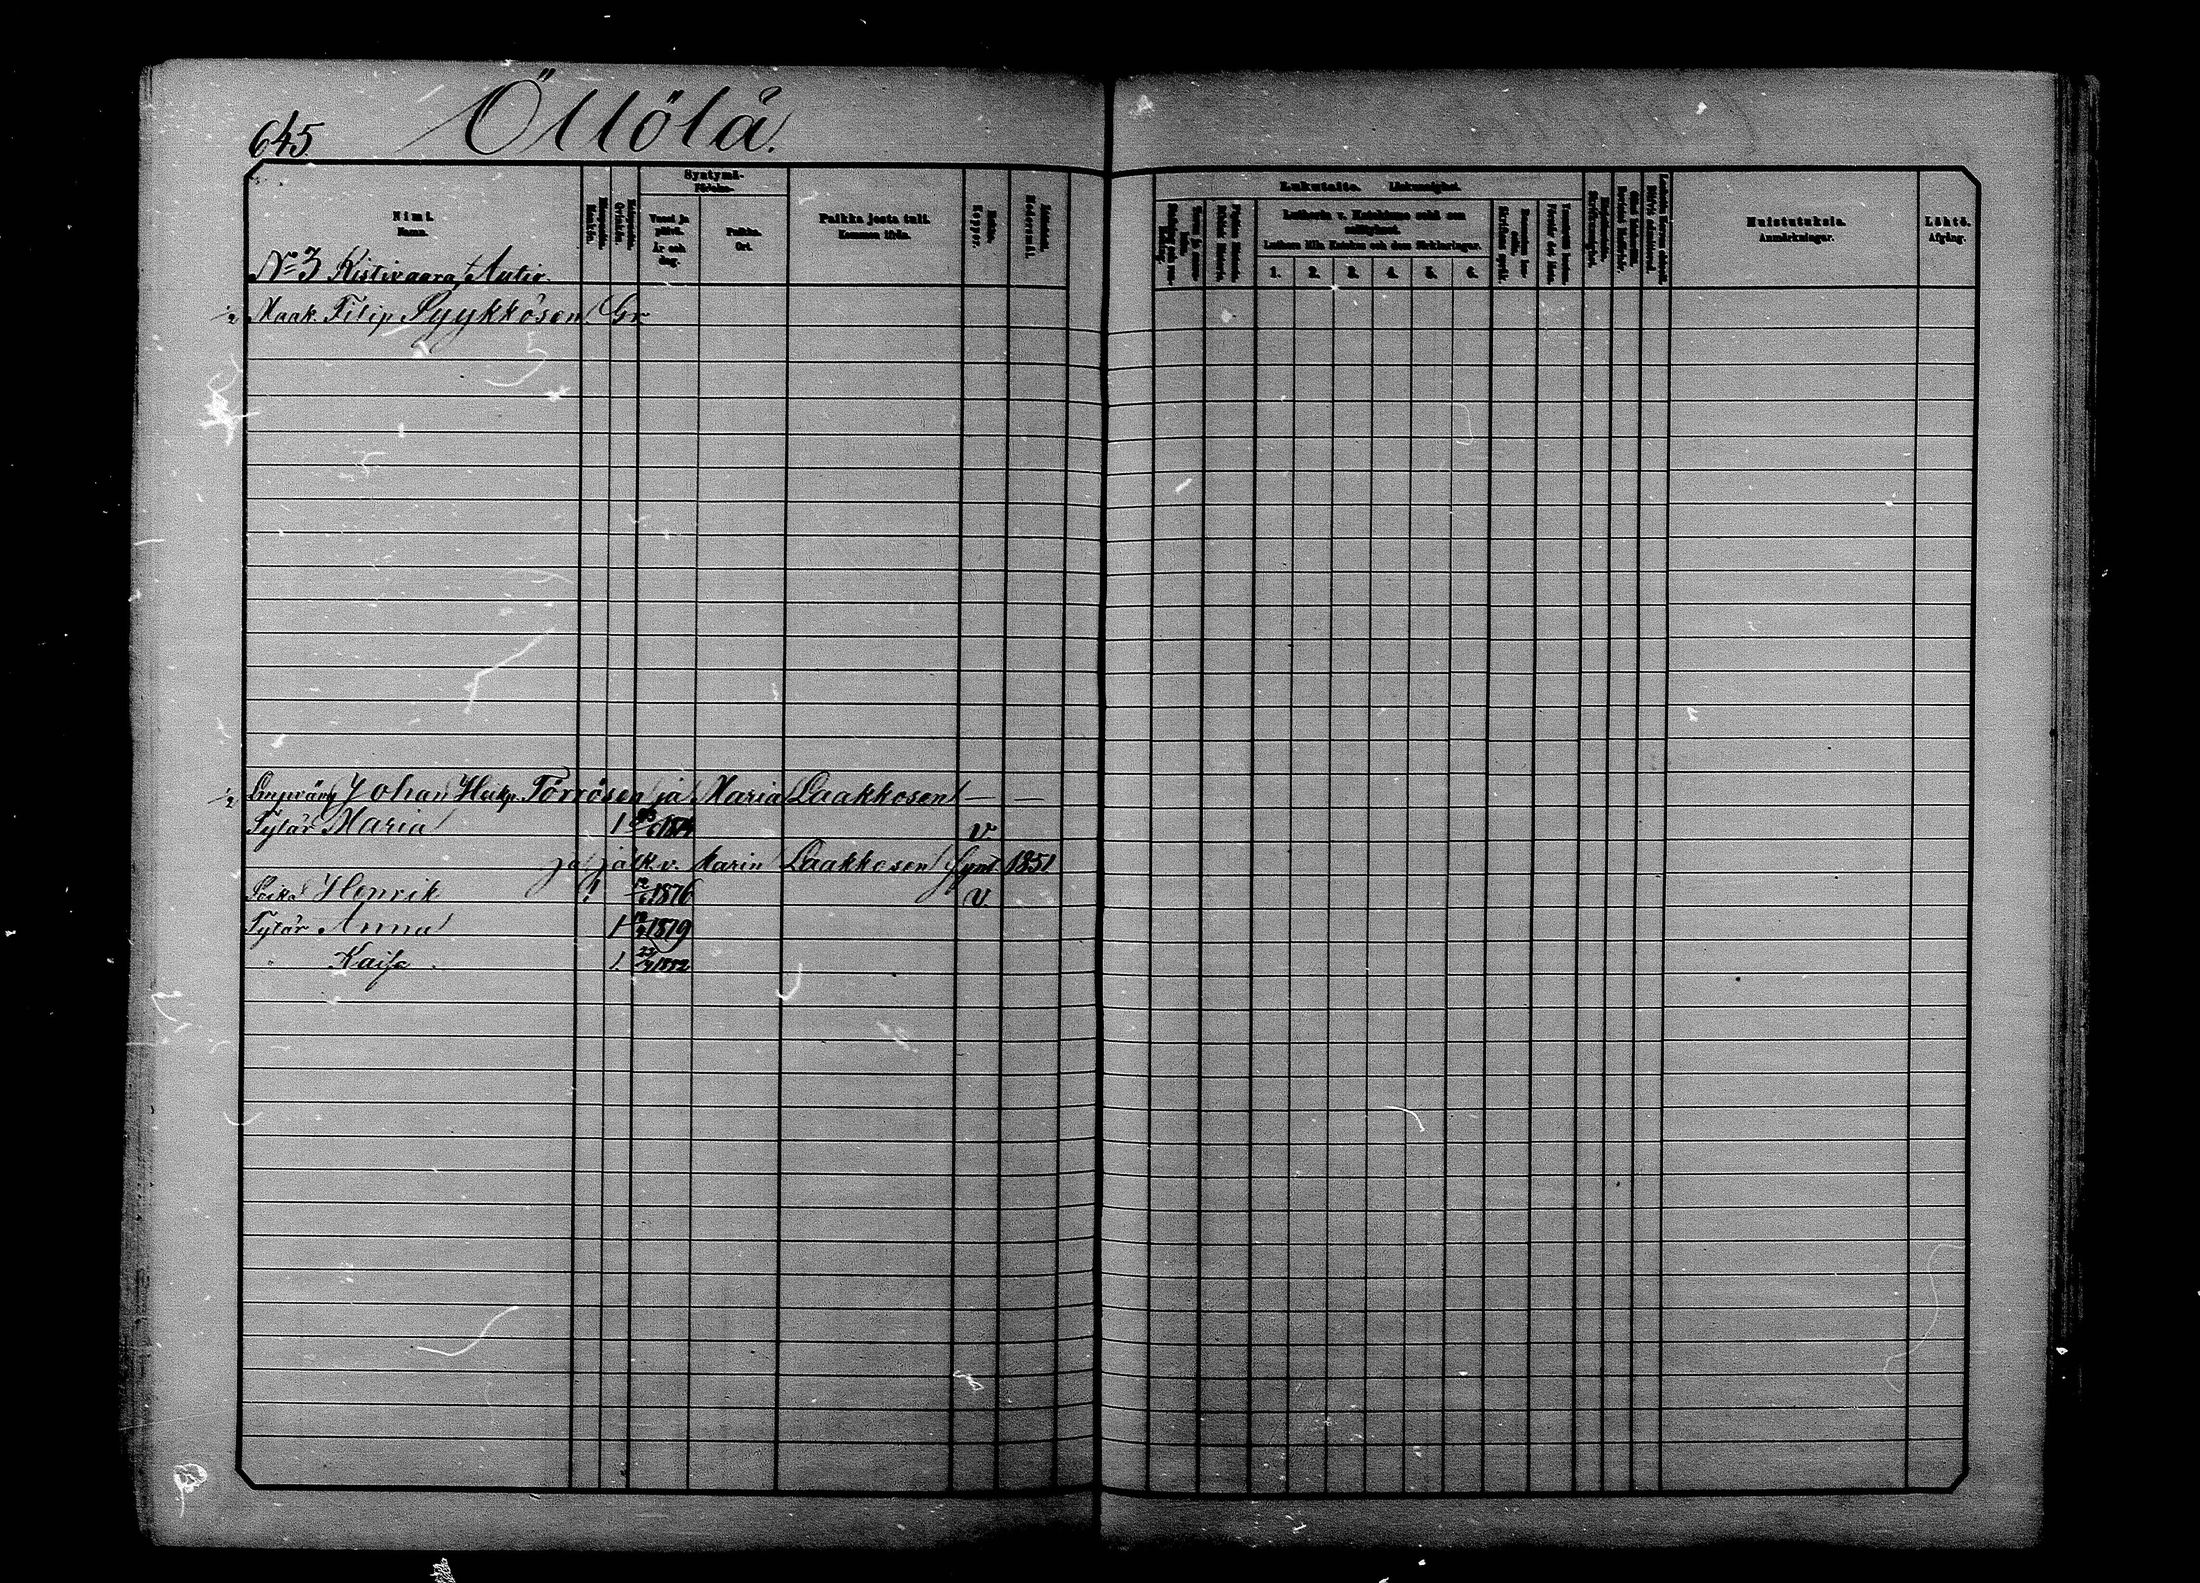 645.
Öllölä.
Nimi.
Namn.
Syntymä-
Födelse-
Vuosi ja päivä.
År och dag.
Paikka.
Ort.
Paikka josta tuli.
Kommen ifrån.
Rokko.
Koppor.
Lukutaito. Läskunnighet.
Lutherin v. Katekismo sekä sen selitykset.
Luthers lilla Katekes och dess förklaringar.
1. 2. 3. 4. 5. 6.
Muistutuksia.
Anmärkningar.
Lähtö.
Afgång.
No 3 Ristivaara, Autio.
1/2 Maak. Filip Pyykkösen Gr
1/2 Johan Heikp. Törrösen ja Maria Laakkosen — —
Tytär Maria 1 1874 v.
ja jälk v. Karin Laakkosen synt 1851
Poika Henrik 1 12/6 1876 v.
Tytär Anna 1 1879
" Kaisa 1. 1882